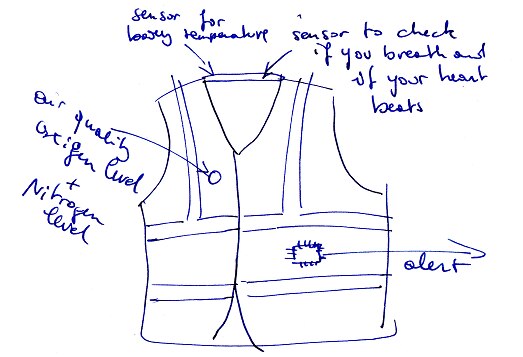 sensor for
body temperature
sensor to check
if you breath and
if your heart
beats
air quality
oxigen level
+
Nitrogen
level
alert